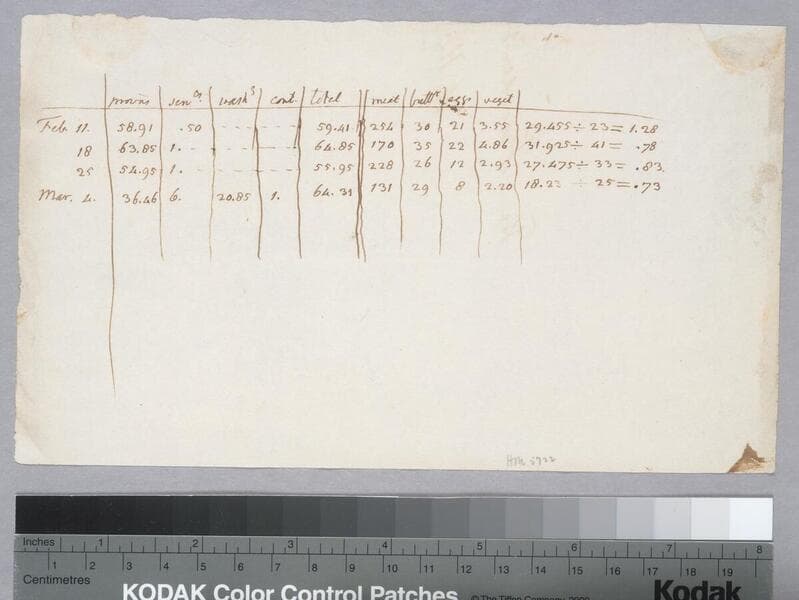 provns serv.ts wash.g cont. total meat butt.r eggs veget
Feb. 11. 58.91 .50 59.41 254 30 21 3.55 29.455 ÷ 23 = 1.28
18 63.85 1. 64.85 170 35 22 4.86 31.925 ÷ 41 = .78
25 54.95 1. 55.95 228 26 12 2.93 27.475 ÷ 33 = .83.
Mar. 4. 36.46 6. 20.85 1. 64.31 131 29 8 2.20 18.23 ÷ 25 = .73
HM 5722
Inches 1 2 3 4 5 6 7 8
1 2 3 4 5 6 7 8 9 10 11 12 13 14 15 16 17 18 19
Centimetres
KODAK Color Control Patches © The Tiffen Company, 2000 Kodak